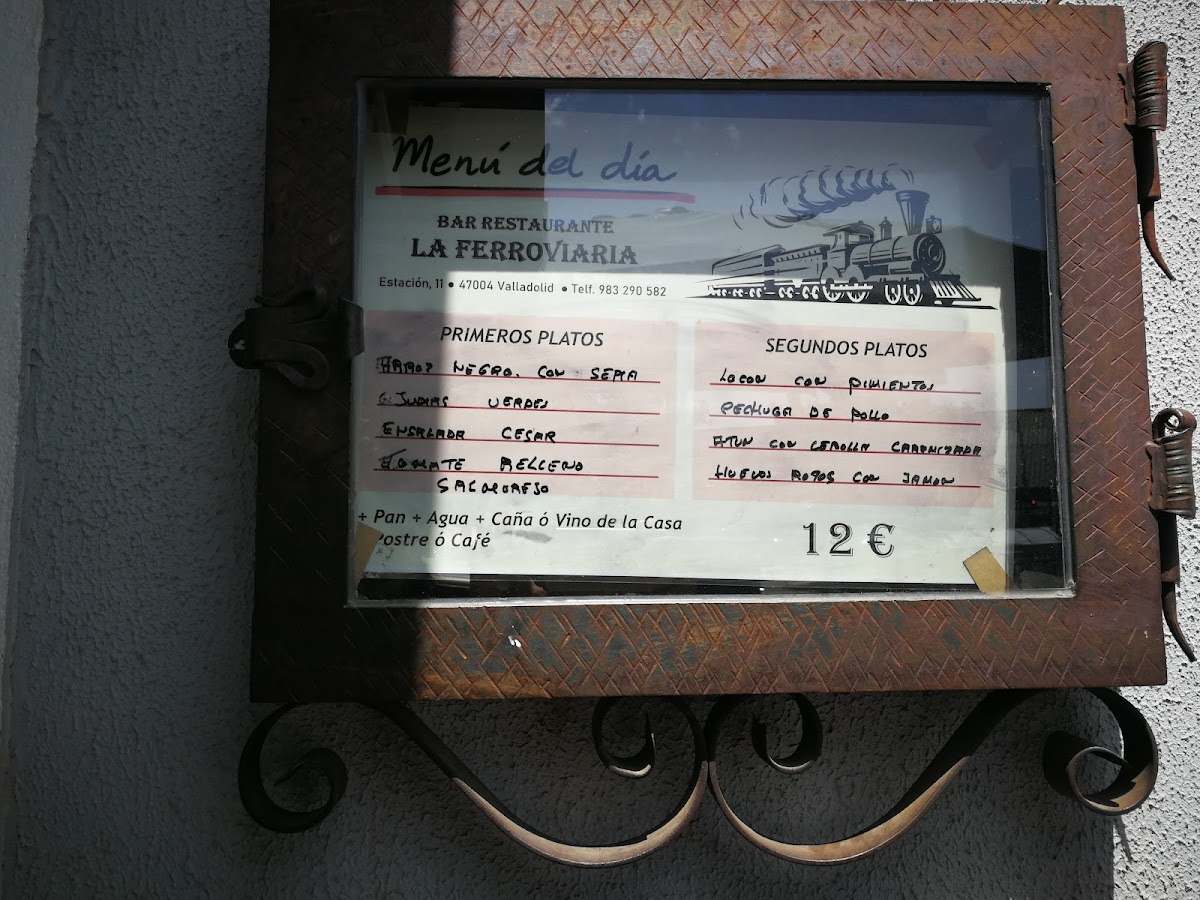 Menú del día
BAR RESTAURANTE
LA FERROVIARIA
Estación, 11 • 47004 Valladolid • Telf. 983 290 582
PRIMEROS PLATOS
ARROZ NEGRO. CON SEPIA
JUDIAS VERDES
ENSALADA CESAR
TOMATE RELLENO
SALMOREJO
SEGUNDOS PLATOS
LACON CON PIMIENTOS
PECHUGA DE POLLO
ATUN CON CEBOLLA
HUEVOS ROTOS CON JAMON
+ Pan + Agua + Caña ó Vino de la Casa
Postre ó Café
12 €